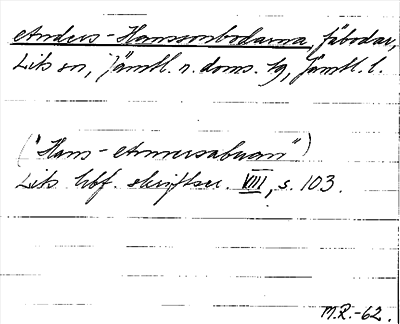 Anders-Hanssonbodarna, fäbodar,
Lits sn, Jämtl. n. doms. lg, Jämtl. l.
("Hans-Annersabuan")
Lits hbf. skriftser. VIII, s. 103.
M.R.-62.